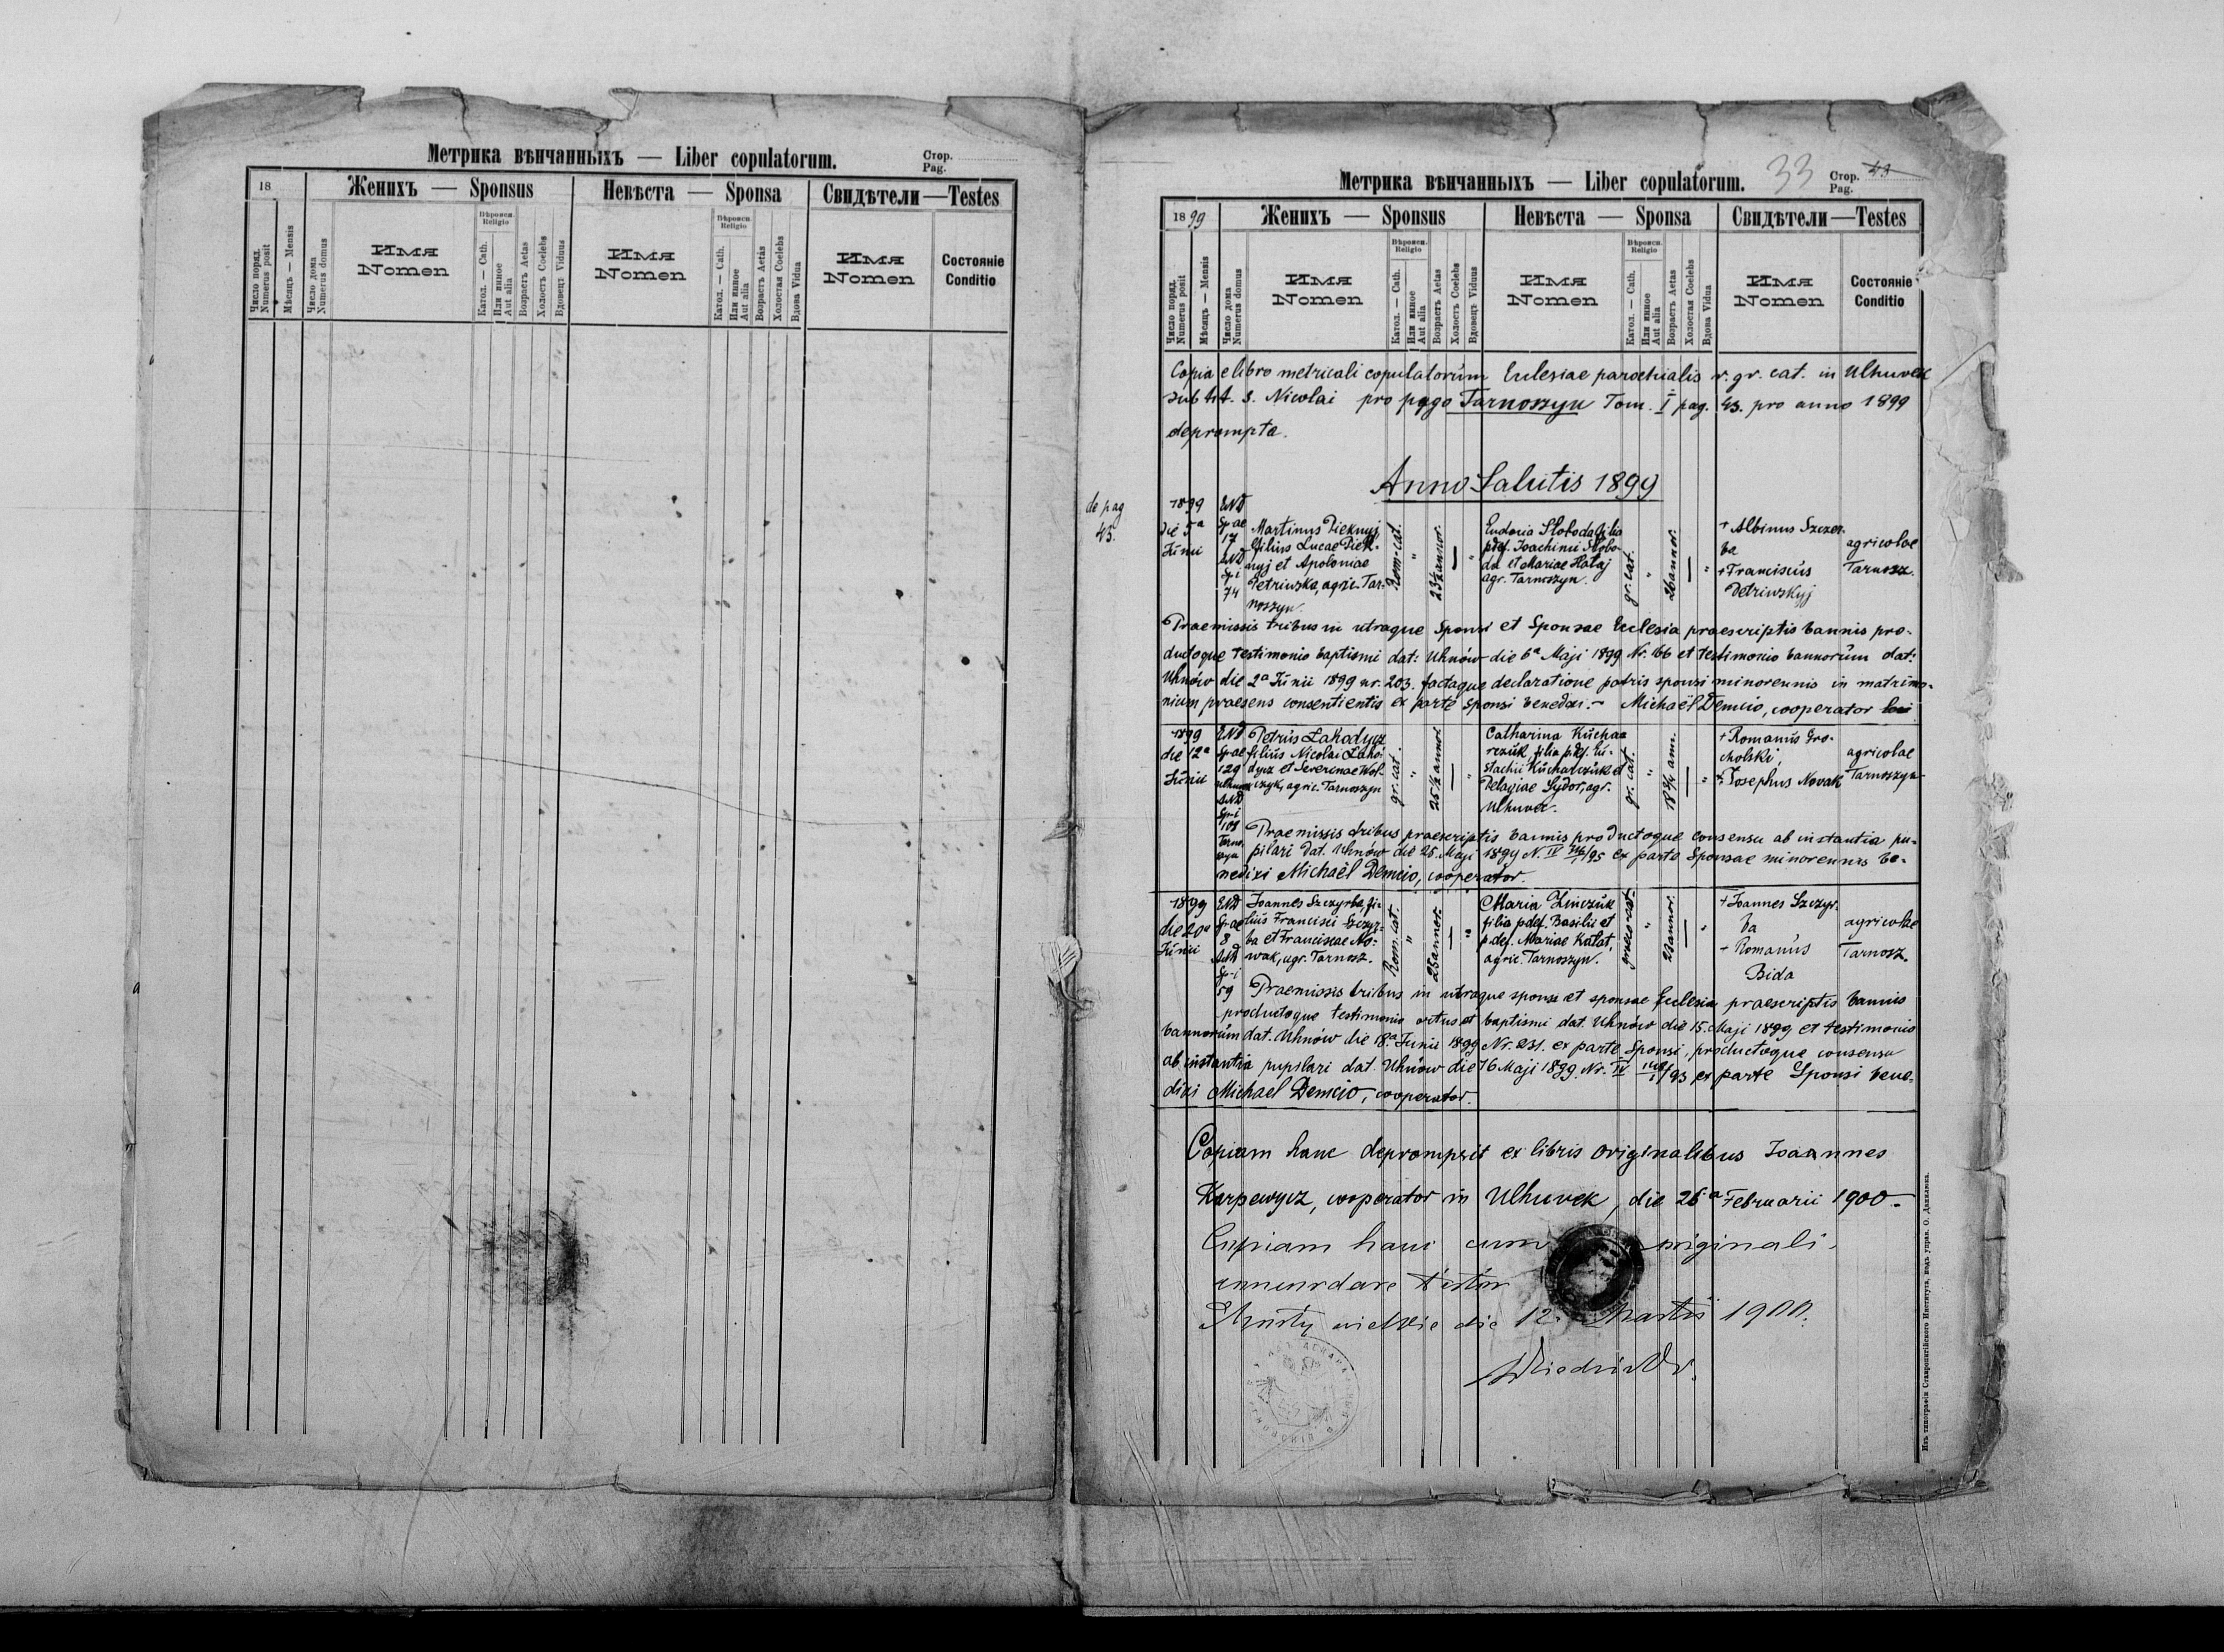 Метрика вѣнчанныхъ — Liber copulatorum.
Стор.
Pag.
18
Женихъ — Sponsus
Невѣста — Sponsa
Свидѣтели — Testes
Число поряд.
Numerus posit
Мѣсяць — Mensis
Число дома
Numerus domus
Имя
Nomen
Вѣроисп.
Religio
Катол. — Cath.
Или инное
Aut alia
Возрастъ Aetas
Холостъ Coelebs
Вдовецъ Viduus
Имя
Nomen
Вѣроисп.
Religio
Катол. — Cath.
Или инное
Aut alia
Возрастъ Aetas
Холостая Coelebs
Вдова Vidua
Имя
Nomen
Состояніе
Conditio
Метрика вѣнчанныхъ — Liber copulatorum.
33
Стор.
Pag.
43
1899
Женихъ — Sponsus
Невѣста — Sponsa
Свидѣтели — Testes
Число поряд.
Numerus posit
Мѣсяць — Mensis
Число дома
Numerus domus
Имя
Nomen
Вѣроисп.
Religio
Катол. — Cath.
Или инное
Aut alia
Возрастъ Aetas
Холостъ Coelebs
Вдовецъ Viduus
Имя
Nomen
Вѣроисп.
Religio
Катол. — Cath.
Или инное
Aut alia
Возрастъ Aetas
Холостая Coelebs
Вдова Vidua
Имя
Nomen
Состояніе
Conditio
Copia e libro metricali copulatorum Ecclesiae parochialis r. gr. cat. in Uhnuvek
sub tit. S. Nicolai pro pago Tarnoszyn Tom. I pag. 43. pro anno 1899
deprompta.
Anno Salutis 1899
de pag
43.
1899
die 5a
Junii
17
74
Martinus Pieknyj,
filius Lucae Piek-
nyj et Apoloniae
Petriwska, agric. Tar-
noszyn.
Rom-cat.
Eudoxia Słoboda filia
pdef. Joachimi Słobo-
da et Mariae Hałaj
agr. Tarnoszyn.
gr. cat.
26 annor.
+ Albinus Szczer-
ba
+ Franciscus
Petriwskyj
agricolae
Tarnosz.
Praemissis tribus in utraque Sponsi et Sponsae Ecclesia praescriptis bannis pro-
ductoque testimonio baptismi dat: Uhnów die 6a Maji 1899 Nr. 166 et testimonio bannorum dat:
Uhnów die 2a Junii 1899 nr. 203. factaque declaratione patris sponsi minorennis in matrimo-
nium praesens consentientis ex parte sponsi benedixi.- Michaël Demcio, cooperator
1899
die 12a
Junii
129
108
Petrus Lahodycz
filius Nicolai Laho-
dycz et Severinae Woł-
czyk, agric. Tarnoszyn
gr. cat.
25 1/2 annor.
Catharina Kuchar-
czuk, filia pdef. Eu-
stachii Kucharczuk et
Pelagiae Sydor, agr.
Uhnuvek.
gr. cat.
18 3/4 ann.
+ Romanus Gro-
cholski,
+ Josephus Novak
agricolae
Tarnoszyn
Praemissis tribus praescriptis bannis productoque consensu ab instantia pu-
pilari dat. Uhnów die 25 Maji 1899 N. IV /95 ex parte Sponsae minorennis be-
nedixi Michaël Demcio, cooperator.
1899
die 20a
Junii
8
59
Joannes Szczyrba, fi-
lius Francisci Szczyr-
ba et Franciscae No-
wak, agr. Tarnosz.
Rom. cat.
Maria Zinczuk
filia pdef. Basilii et
pdef. Mariae Kałat,
agric. Tarnoszyn.
graeco-cat.
23 annor.
+ Joannes Szczyr-
ba
+ Romanus
Bida
agricolae
Tarnosz.
Praemissis tribus in utraque sponsi et sponsae Ecclesia praescriptis bannis
productoque testimonio ortus et baptismi dat. Uhnów die 15. Maji 1899 et testimonio
bannorum dat. Uhnów die 18.a Junii 1899 Nr. 231. ex parte Sponsi, productoque consensu
ab instantia pupilari dat. Uhnów die 16 Maji 1899. Nr. IV /93 ex parte Sponsi bene-
dixi Michael Demcio, cooperator.
Copiam hanc deprompsit ex libris originalibus Joannes
Karpewycz, cooperator in Uhnuvek, die 26a Februarii 1900.-
Copiam hanc cum originali
concordare testor
die 12. Martii 1900.
Изъ типографіи Ставропигійского Института, подъ управ. О. Данилюка.